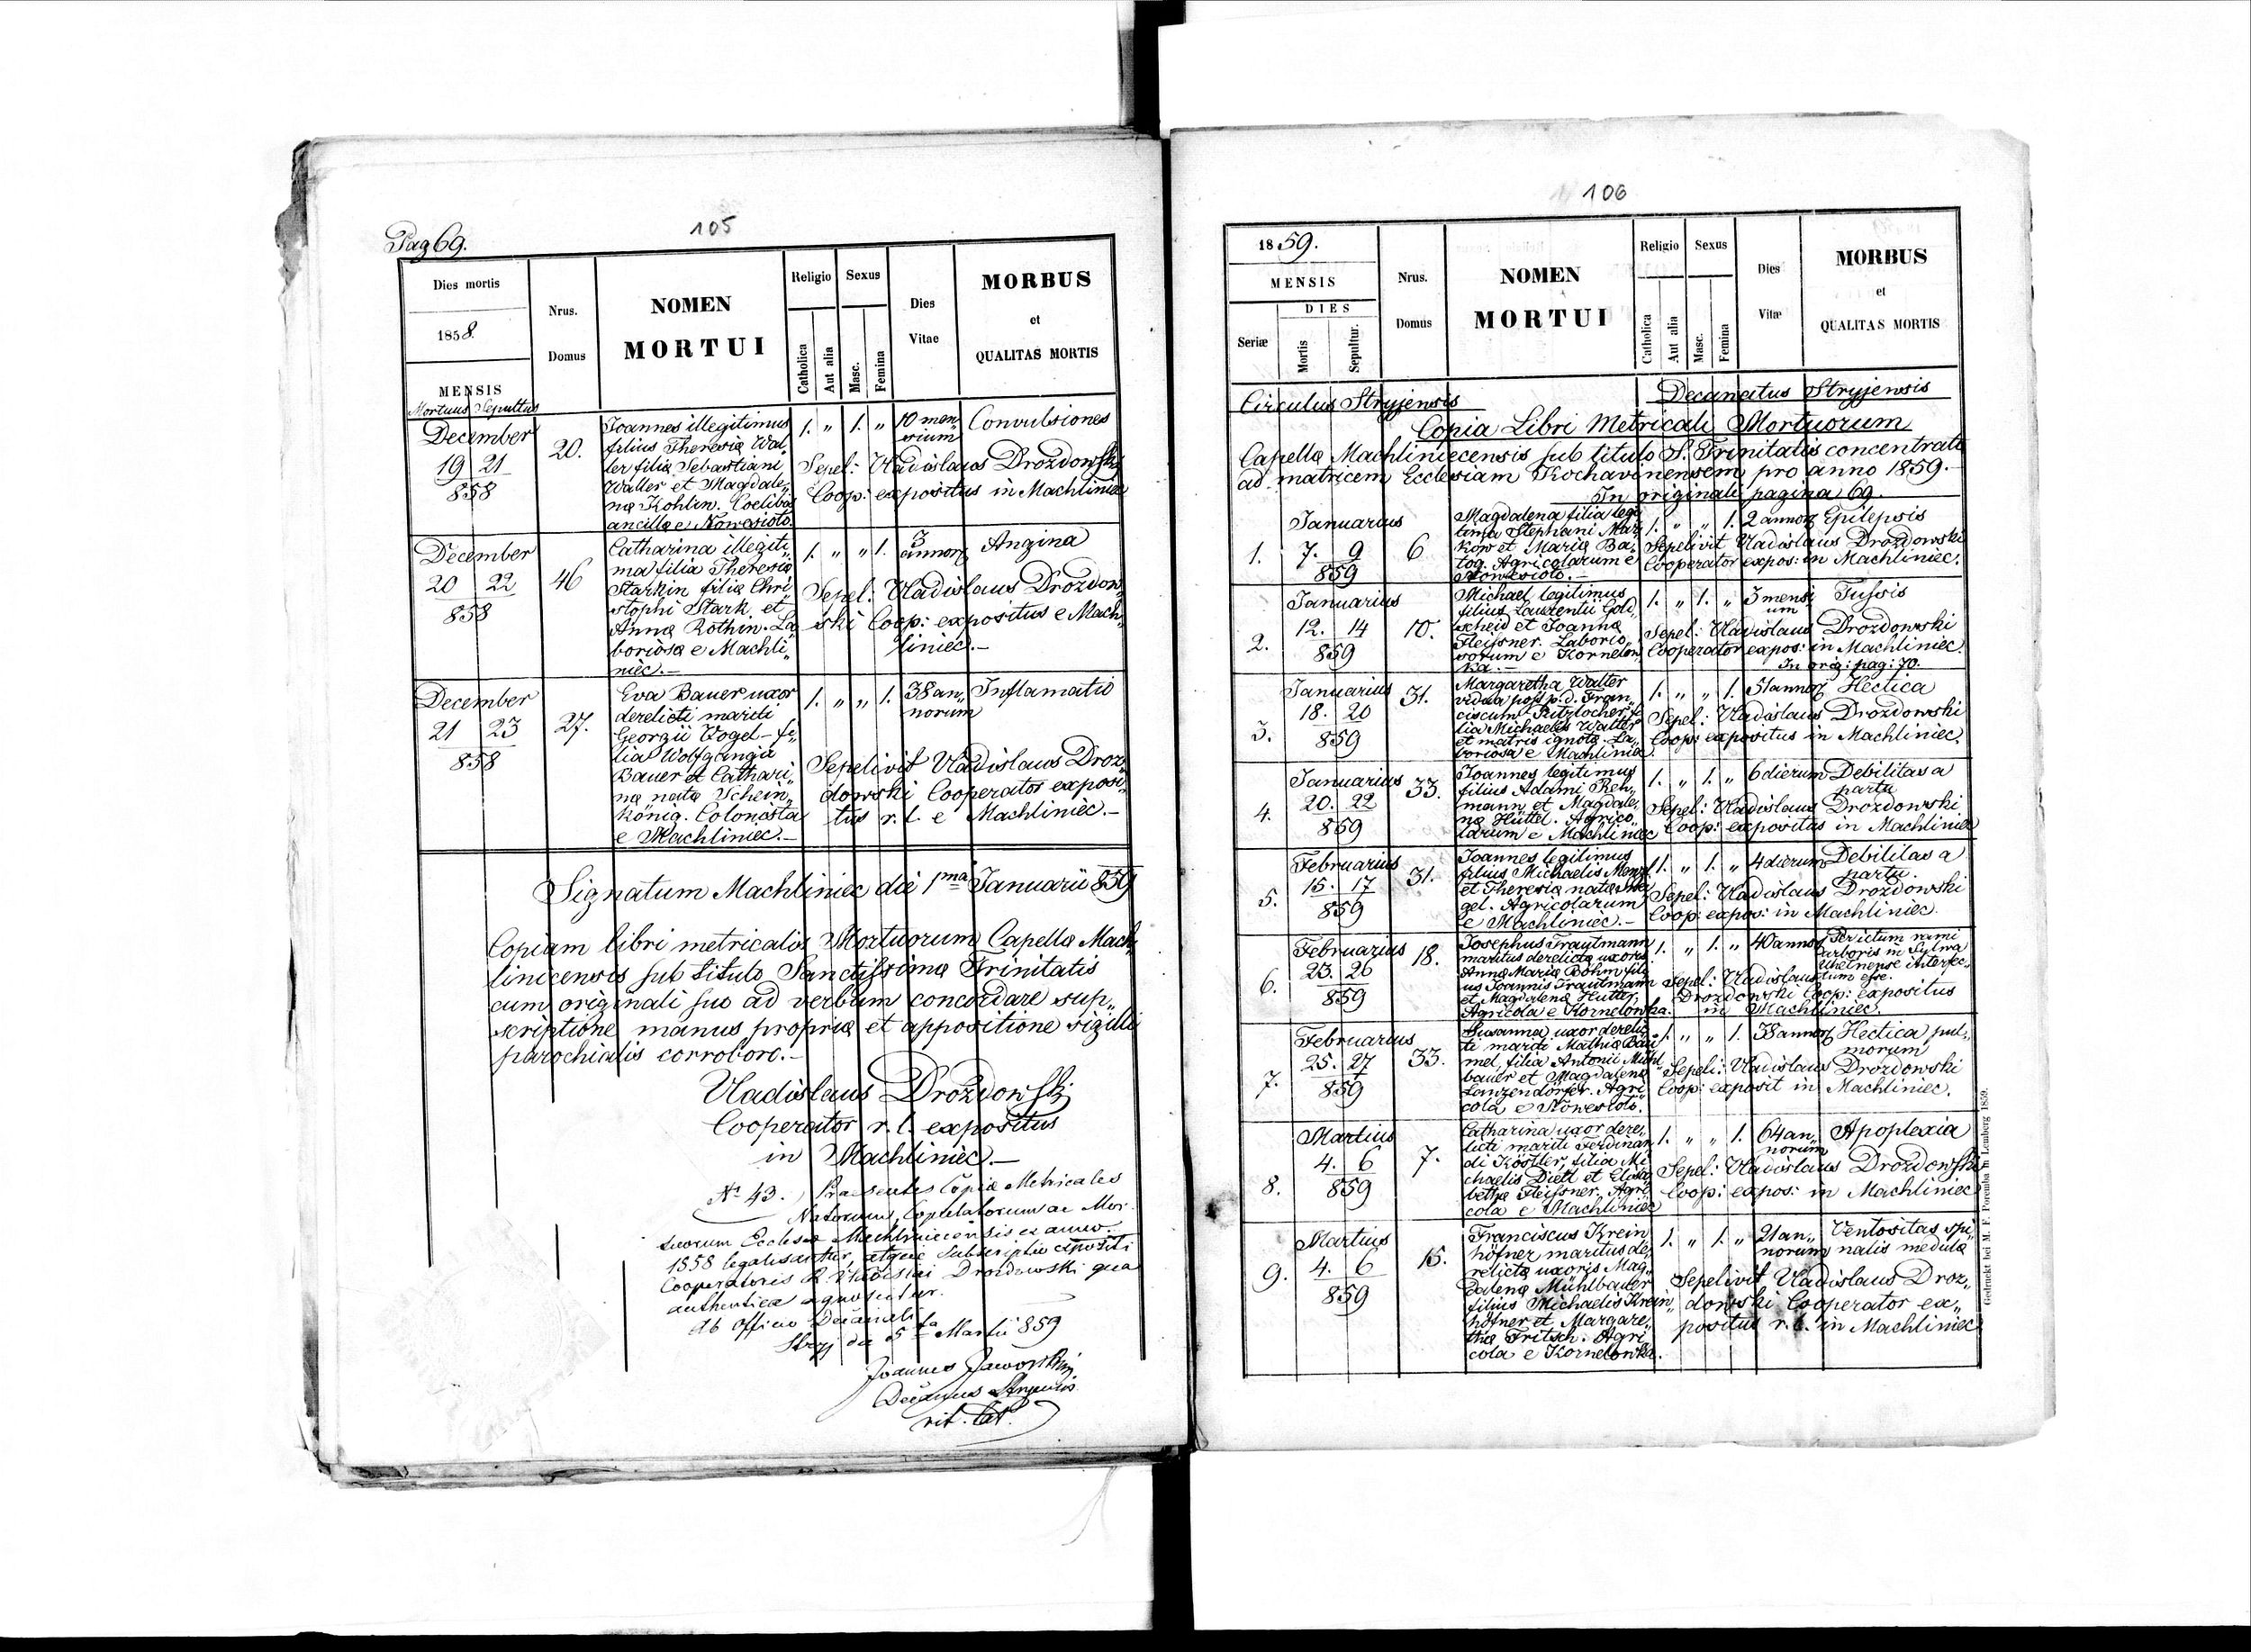 Pag 69.
105
Dies mortis
1858.
MENSIS
Mortuus Sepultus
Nrus.
Domus
NOMEN
MORTUI
Religio
Catholica
Aut alia
Sexus
Masc.
Femina
Dies
Vitae
MORBUS
et
QUALITAS MORTIS
December
19 21
858
20.
Joannes illegitimus
filius Theresiæ Wal„
ler filiæ Sebastiani
Waller et Magdale„
næ Kohlin. Coeliba
ancilla e Nowesioło.
1. „ 1. „
10 men„
sium
Convulsiones
Sepel: Vladislaus Drozdowski
Coop: expositus in Machliniec
December
20 22
858
46
Catharina illegiti„
ma filia Theresiæ
Starkin filiæ Chri„
stophi Stark et
Annæ Rothin. La„
boriosa e Machli„
niec.—
1. „ „ 1.
3
annor
Angina
Sepel: Vladislaus Drozdow„
ski Coop: expositus e Mach„
liniec.—
December
21 23
858
27.
Eva Bauer uxor
derelicti mariti
Georgii Vogel – fi„
lia Wolfgangi
Bauer et Cathari„
næ natæ Schein„
könig. Colonista
e Machliniec.—
1. „ „ 1.
38 an„
norum
Inflamatio
Sepelivit Vladislaus Droz„
dowski Cooperator exposi„
tus r. l. e Machliniec.—
Signatum Machliniec die 1ma Januarii 859
Copiam libri metricalis Mortuorum Capellæ Mach„
liniecensis sub titulo Sanctissimæ Trinitatis
cum originali suo ad verbum concordare sup„
scriptione manus propriæ et appositione sigilli
parochialis corroboro.—
Vladislaus Drozdowski
Cooperator r. l. expositus
in Machliniec.—
No 43. Praesentes Copiæ Metricales
Natorum, Copulatorum ac Mor
tuorum Ecclesiæ Machliniecensis ex anno
1858 legalisantur, atque subscriptio expositi
Cooperatoris R. Vladislai Drozdowski qua
authentica agnoscitur.
Ab Officio Decanali
Stryj die 5ta Martii 859
Joannes Jaworski
Decanus Stryensis
rit. lat.
106
1859.
MENSIS
DIES
Seriæ
Mortis
Sepultur.
Nrus.
Domus
NOMEN
MORTUI
Religio
Catholica
Aut alia
Sexus
Masc.
Femina
Dies
Vitæ
MORBUS
et
QUALITAS MORTIS
Circulus Stryjensis
Decanatus Stryjensis
Copia Libri Metricali Mortuorum
Capellæ Machliniecensis sub titulo S. Trinitatis concentratæ
ad matricem Ecclesiam Kochavinensem pro anno 1859.—
In originali pagina 69.
Januarius
1. 7. 9
859
6
Magdalena filia legi
tima Stephani Mar
kow et Mariæ Ba„
log. Agricolarum e
Nowesioło.—
1. „ „ 1.
2 annor
Epilepsis
Sepelivit Vladislaus Drozdowski
Cooperator expos: in Machliniec.
Januarius
2. 12. 14
859
10.
Michael legitimus
filius Laurentii Gold„
scheid et Joannæ
Fleissner. Laborio„
sorum e Kornelow„
ka.—
1. „ 1. „
3 mensi
um
Tussis
Sepel: Vladislaus Drozdowski
Cooperator expos: in Machliniec.
In orig: pag: 70.
Januarius
3. 18. 20
859
31.
Margaretha Walter
vidua post p. d. Fran„
ciscum Ritzlocher fi
lia Michaelis Walter
et matris ignotæ. La„
boriosa e Machliniec.
1. „ „ 1.
51 annor
Hectica
Sepel: Vladislaus Drozdowski
Coop: expositus in Machliniec.
Januarius
4. 20. 22
859
33.
Joannes legitimus
filius Adami Reh„
mann et Magdale„
næ Hüttel. Agrico„
larum e Machliniec
1. „ 1. „
6 dierum
Debilitas a
partu
Sepel: Vladislaus Drozdowski
Coop: expositus in Machliniec
Februarius
5. 15. 17
859
31.
Joannes legitimus
filius Michaelis
et Theresiæ natæ
gel. Agricolarum
e Machliniec.—
1. „ 1. „
4 dierum
Debilitas a
partu.
Sepel: Vladislaus Drozdowski
Coop: expos: in Machliniec.
Februarius
6. 23. 26
859
18.
Josephus Trautmann
maritus derelictæ uxoris
Annæ Mariæ Böhm fili
us Joannis Trautmann
et Magdalenæ Hüttel.
Agricola e Kornelowka.
1. „ 1. „
40 annor
Per ictum rami
arboris in Sylva
interfec„
tum esse.
Sepel: Vladislaus
Drozdowski Coop: expositus
in Machliniec.
Februarius
7. 25. 27
859
33.
Susanna uxor derelic„
ti mariti Mathiæ
mel, filia Antonii Mühl
bauer et Magdalenæ
Lanzendörfer. Agri
cola e Nowesioło.
1. „ „ 1.
38 annor
Hectica pul„
morum
Sepeli: Vladislaus Drozdowski
Coop: exposit in Machliniec.
Martius
8. 4. 6
859
7.
Catharina uxor dere„
licti mariti Ferdinan
di Köstler, filia Mi
chaelis Dietl et Elisa
bethæ Fleissner. Agri
cola e Machliniec
1. „ „ 1.
64 an„
norum
Apoplexia
Sepel: Vladislaus Drozdowski
Coop: expos: in Machliniec
Martius
9. 4. 6
859
15.
Franciscus Krein
höfner maritus de„
relictæ uxoris Mag„
dalenæ Mühlbauer
filius Michaelis Krein„
höfner et Margare„
thæ Fritsch. Agri
cola e Kornelowka.
1. „ 1. „
21 an„
norum
Ventositas spi„
nalis medulæ
Sepelivit Vladislaus Droz„
dowski Cooperator ex„
positus r. l. in Machliniec
Gedruckt bei M. F. Poremba in Lemberg 1859.